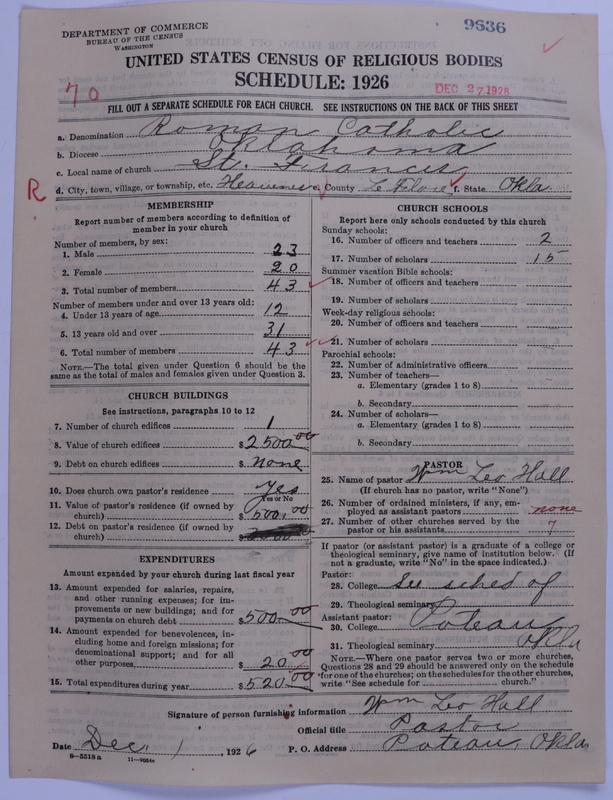 DEPARTMENT OF COMMERCE
BUREAU OF THE CENSUS
WASHINGTON
9636
UNITED STATES CENSUS OF RELIGIOUS BODIES
SCHEDULE: 1926
DEC 27 1926
70
FILL OUT A SEPARATE SCHEDULE FOR EACH CHURCH. SEE INSTRUCTIONS ON THE BACK OF THIS SHEET
a. Denomination Roman Catholic
b. Diocese Oklahoma
c. Local name of church St. Francis
R d. City, town, village, or township, etc. Heavener e. County Le Flore f. State Okla.
MEMBERSHIP
Report number of members according to definition of
member in your church
Number of members, by sex:
1. Male 23
2. Female 20
3. Total number of members 43
Number of members under and over 13 years old:
4. Under 13 years of age 12
5. 13 years old and over 31
6. Total number of members 43
NOTE.—The total given under Question 6 should be the
same as the total of males and females given under Question 3.
CHURCH BUILDINGS
See instructions, paragraphs 10 to 12
7. Number of church edifices 1
8. Value of church edifices $2500.00
9. Debt on church edifices $None
10. Does church own pastor's residence Yes
Yes or No
11. Value of pastor's residence (if owned by
church) $500.00
12. Debt on pastor's residence (if owned by
church) $
EXPENDITURES
Amount expended by your church during last fiscal year
13. Amount expended for salaries, repairs,
and other running expenses; for im-
provements or new buildings; and for
payments on church debt $500.00
14. Amount expended for benevolences, in-
cluding home and foreign missions; for
denominational support; and for all
other purposes $20.00
15. Total expenditures during year $520.00
CHURCH SCHOOLS
Report here only schools conducted by this church
Sunday schools:
16. Number of officers and teachers 2
17. Number of scholars 15
Summer vacation Bible schools:
18. Number of officers and teachers
19. Number of scholars
Week-day religious schools:
20. Number of officers and teachers
21. Number of scholars
Parochial schools:
22. Number of administrative officers
23. Number of teachers—
a. Elementary (grades 1 to 8)
b. Secondary
24. Number of scholars—
a. Elementary (grades 1 to 8)
b. Secondary
PASTOR
25. Name of pastor Wm Leo Hall
(If church has no pastor, write "None")
26. Number of ordained ministers, if any, em-
ployed as assistant pastors none
27. Number of other churches served by the
pastor or his assistants 7
If pastor (or assistant pastor) is a graduate of a college or
theological seminary, give name of institution below. (If
not a graduate, write "No" in the space indicated.)
Pastor:
28. College See sched of
29. Theological seminary
Assistant pastor:
30. College Poteau
31. Theological seminary Okla
NOTE.—Where one pastor serves two or more churches,
Questions 28 and 29 should be answered only on the schedule
for one of the churches; on the schedules for the other churches,
write "See schedule for church."
Signature of person furnishing information Wm Leo Hall
Official title Pastor
Date Dec 1, 1926 P. O. Address Poteau, Okla
8—5518a 11—9654